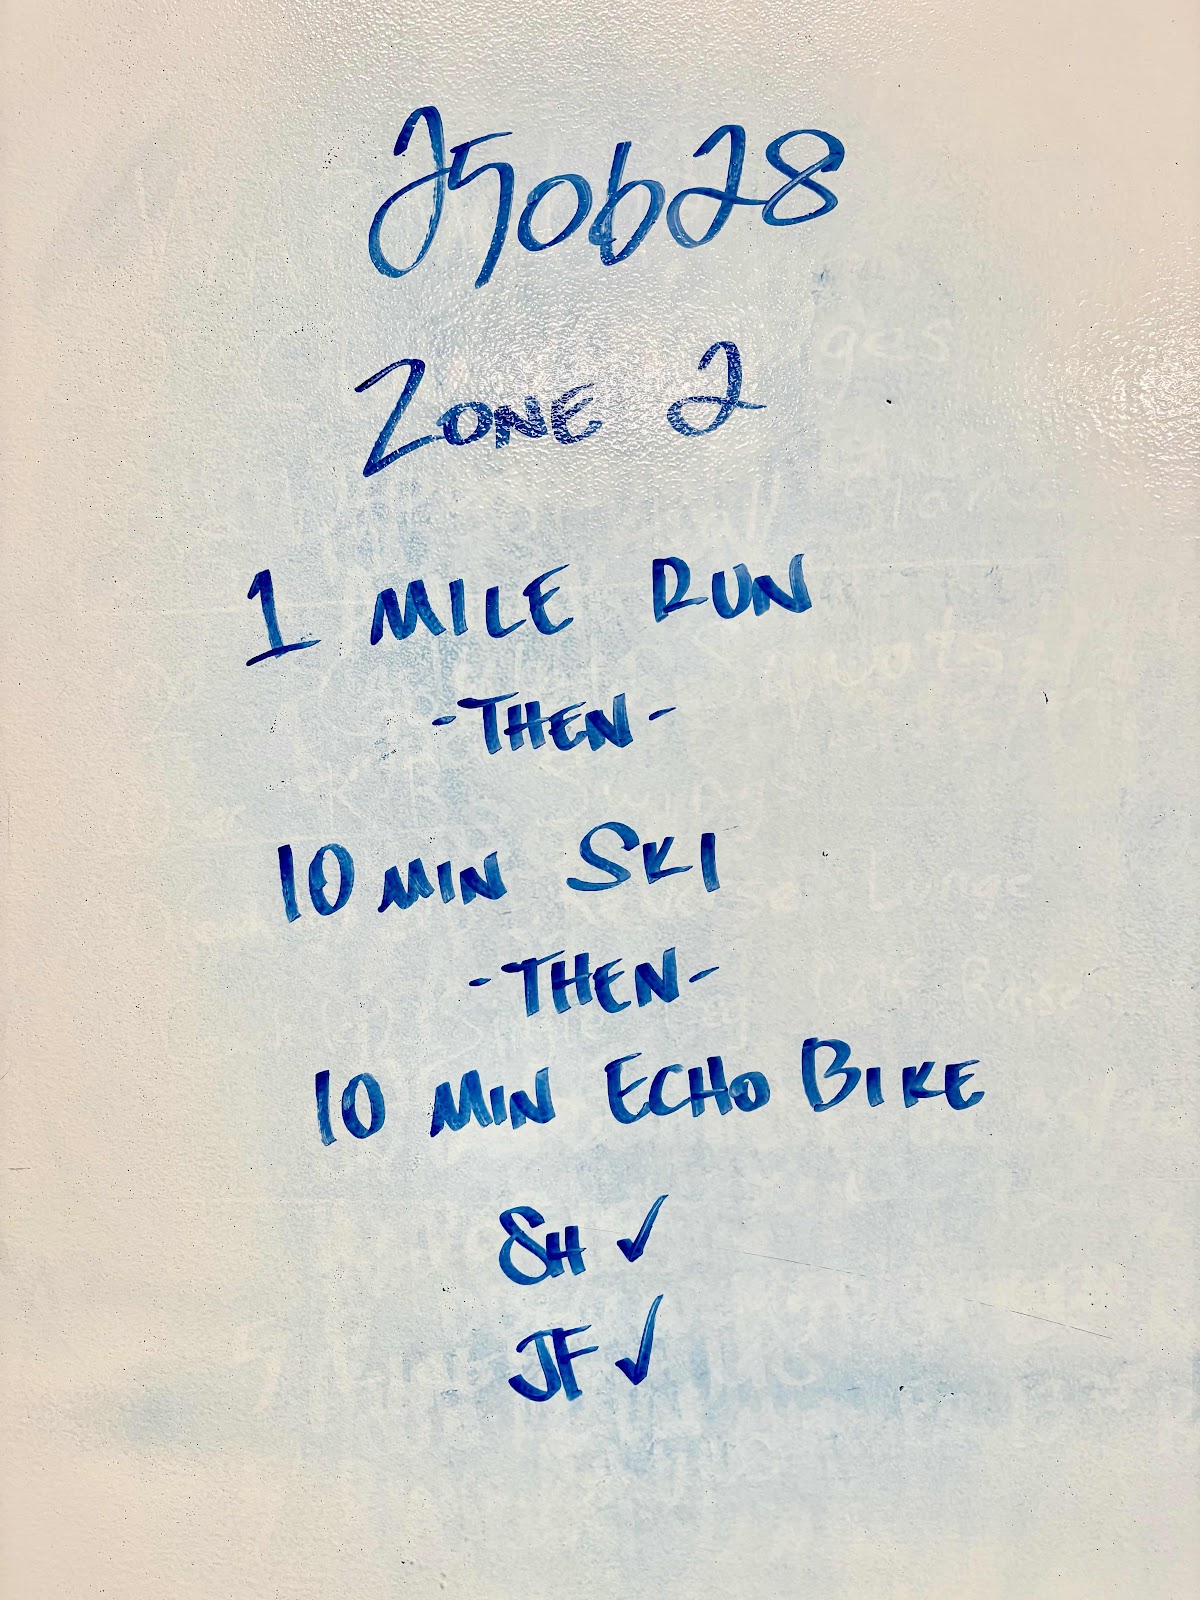 250628
ZONE 2
1 MILE RUN
-THEN-
10 MIN SKI
-THEN-
10 MIN ECHO BIKE
SH ✓
JF ✓